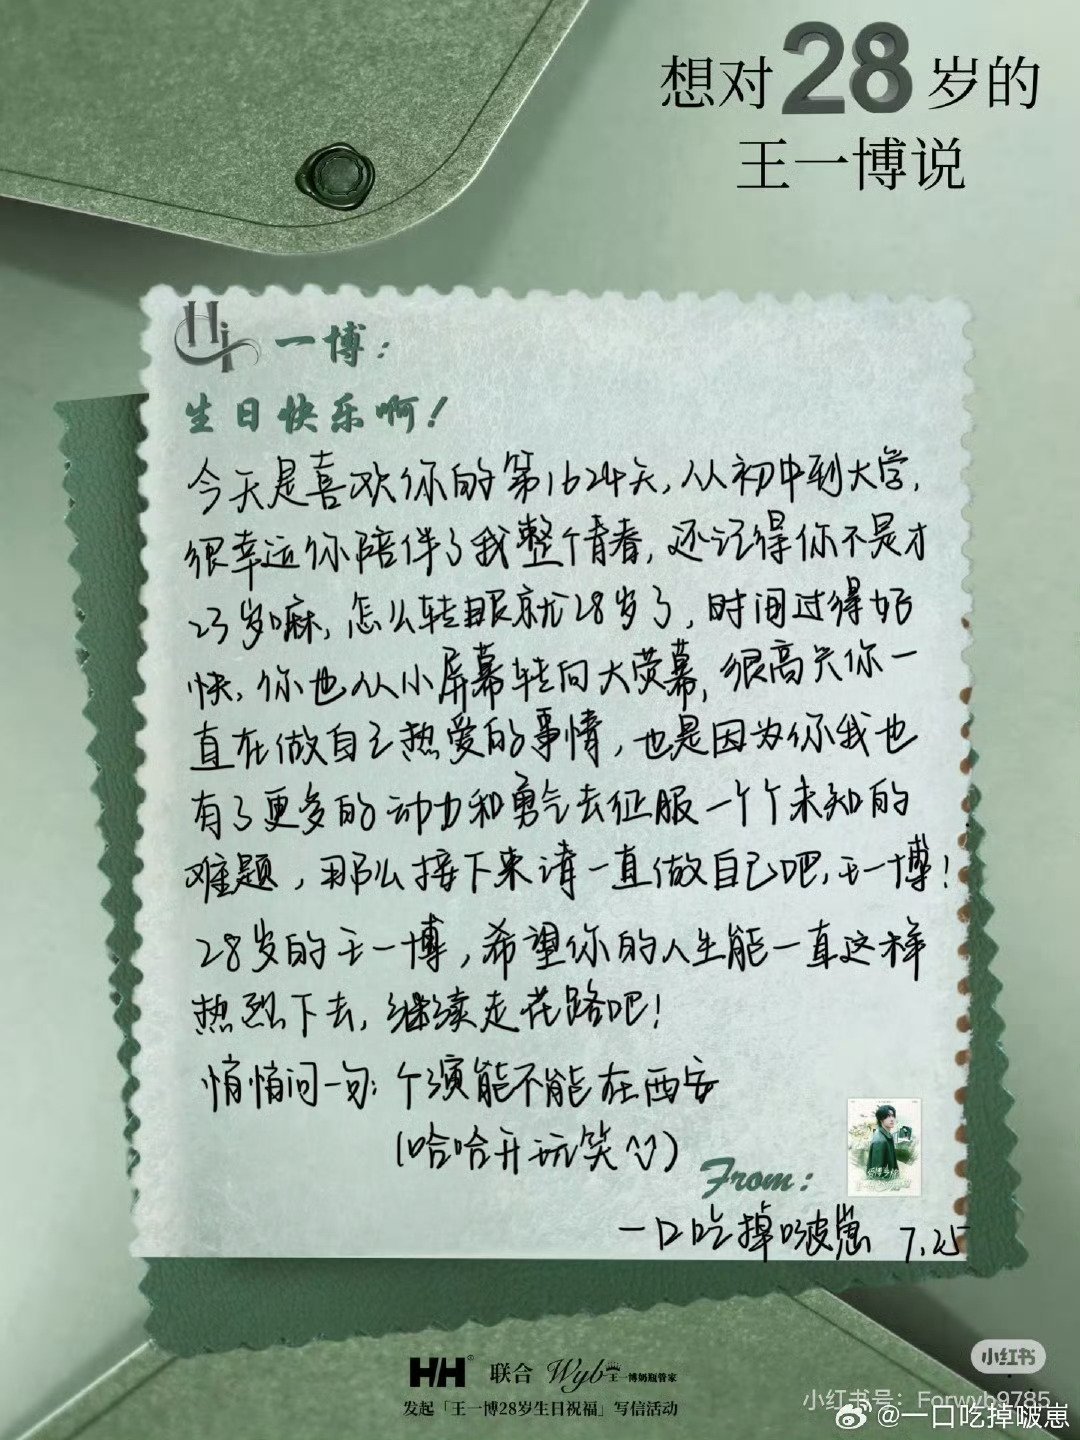 想对28岁的
王一博说
Hi 一博：
生日快乐啊！
今天是喜欢你的第1624天，从初中到大学，
很幸运你陪伴了我整个青春，还记得你不是才
23岁嘛，怎么转眼就28岁了，时间过得好
快，你也从小屏幕转向大荧幕，很高兴你一
直在做自己热爱的事情，也是因为你我也
有了更多的动力和勇气去征服一个个未知的
难题，那么接下来请一直做自己吧，王一博！
28岁的王一博，希望你的人生能一直这样
热烈下去，继续走花路吧！
悄悄问一句：个演能不能在西安
（哈哈开玩笑^^）
From：
一口吃掉啵崽 7.25
HH® 联合 Wyb王一博奶瓶管家
发起「王一博28岁生日祝福」写信活动
小红书
小红书号：Forwyb9785
@一口吃掉啵崽